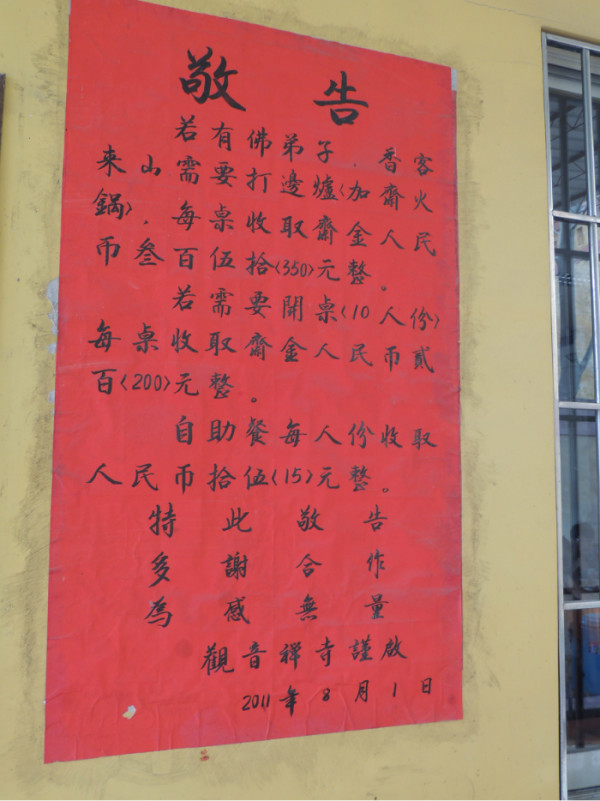 敬告
若有佛弟子，香客
来山需要打邊爐〈加齋火
鍋〉，每桌收取齋金人民
币叁百伍拾〈350〉元整。
若需要開桌〈10人份〉
每桌收取齋金人民币貳
百〈200〉元整。
自助餐每人份收取
人民币拾伍〈15〉元整。
特此敬告
多謝合作
為感無量
觀音禅寺謹啟
2011年8月1日